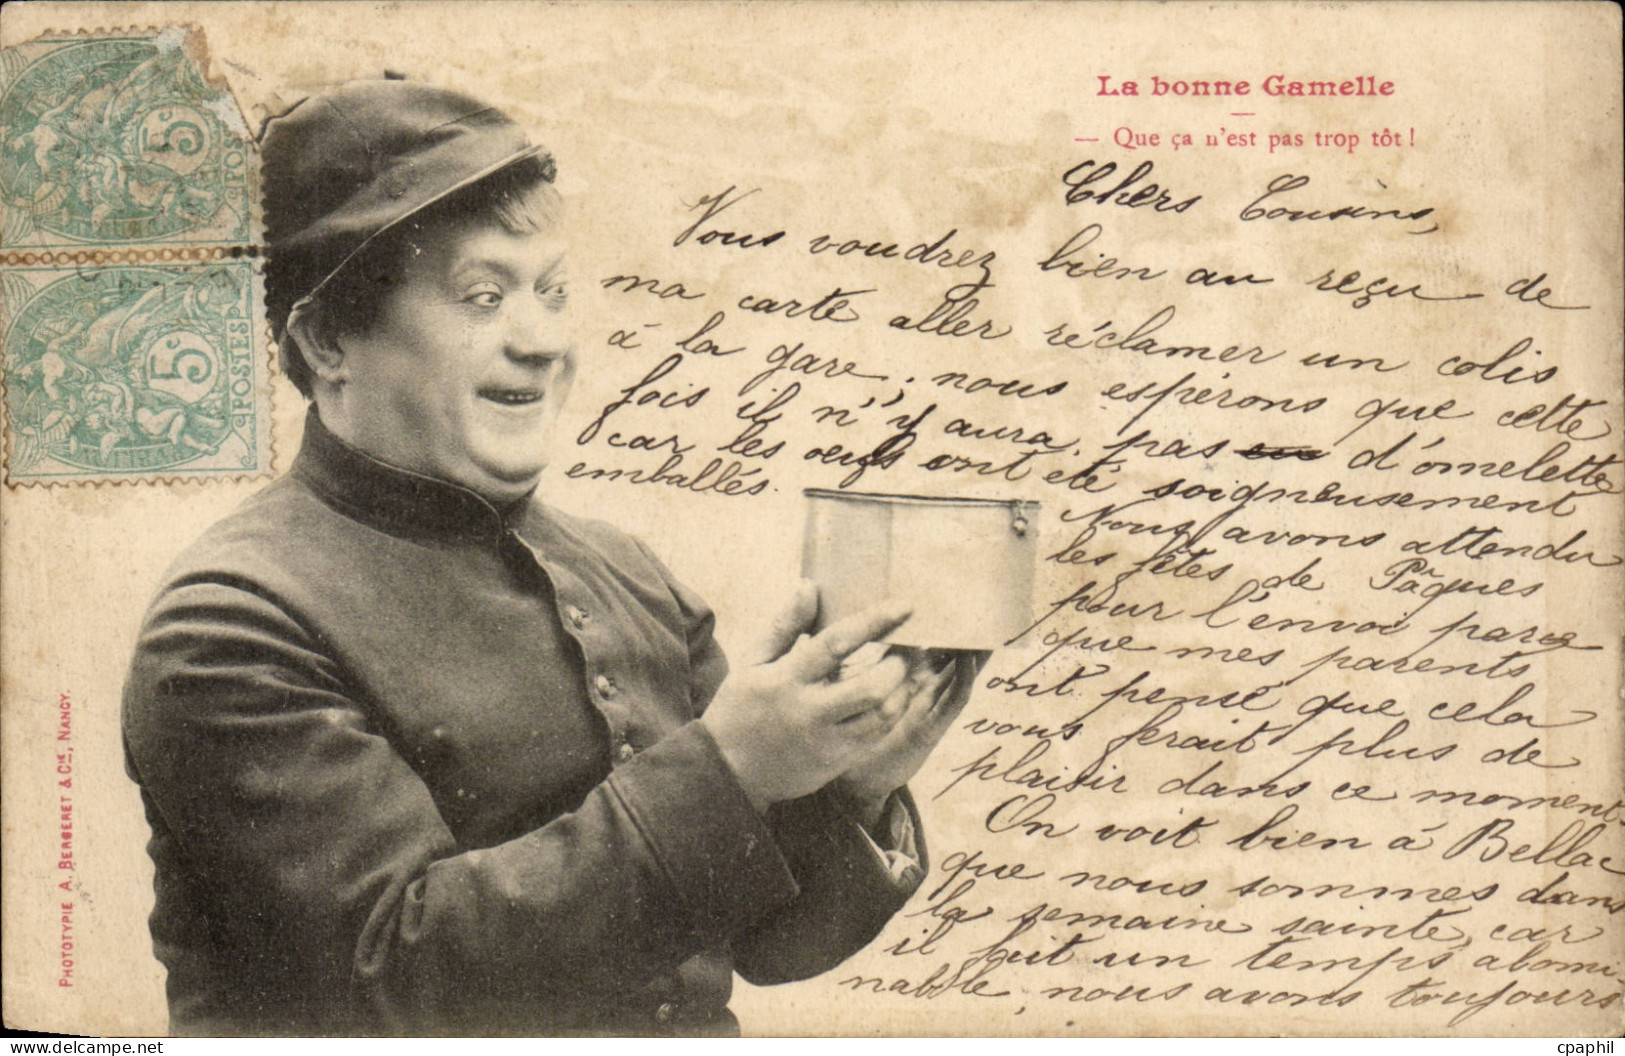 La bonne Gamelle
— Que ça n'est pas trop tôt !
Chers Cousins,
Vous voudrez bien au reçu de
ma carte aller réclamer un colis
à la gare; nous espérons que cette
fois il n'y aura pas d'omelette
car les oeufs ont été soigneusement
emballés.
Nous avons attendu
les fêtes de Pâques
pour l'envoi parce
que mes parents
ont pensé que cela
vous ferait plus de
plaisir dans ce moment.
On voit bien à Bellac
que nous sommes dans
la semaine sainte, car
il fait un temps abomi-
nable, nous avons toujours
5c
POSTES
5c
POSTES
PHOTOTYPIE A. BERGERET & Cie, NANCY.
www.delcampe.net
cpaphil